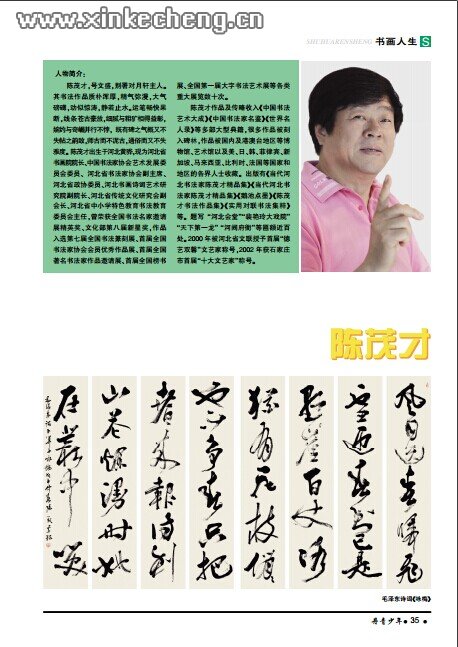 www.xinkecheng.cn
SHUHUARENSHENG 书画人生 S
人物简介：
陈茂才，号文盛，别署对月轩主人。
其书法作品质朴浑厚，精气弥漫，大气
磅礴，动似惊涛，静若止水。运笔畅快果
断，线条苍古豪放，细腻与粗犷相得益彰，
婉约与奇崛并行不悖，既有碑之气概又不
失帖之韵致，师古而不泥古，通俗而又不失
雅度。陈茂才出生于河北黄骅，现为河北省
书画院院长、中国书法家协会艺术发展委
员会委员、河北省书法家协会副主席、
河北省政协委员、河北书画诗词艺术研
究院副院长、河北省传统文化研究会副
会长、河北省中小学特色教育书法教育
委员会主任，曾荣获全国书法名家邀请
展精英奖、文化部第八届新星奖，作品
入选第七届全国书法篆刻展、首届全国
书法家协会会员优秀作品展、首届全国
著名书法家作品邀请展、首届全国榜书
展、全国第一届大字书法艺术展等各类
重大展览数十次。
陈茂才作品及传略收入《中国书法
艺术大成》《中国书法家名鉴》《世界名
人录》等多部大型典籍，很多作品被刻
入碑林，作品被国内及港澳台地区等博
物馆、艺术馆以及美、日、韩、菲律宾、新
加坡、马来西亚、比利时、法国等国家和
地区的各界人士收藏。出版有《当代河
北书法家陈茂才精品集》《当代河北书
法家陈茂才精品集》《鹅池点墨》《陈茂
才书法作品集》《实用对联书法集粹》
等。题写“河北会堂”“裴艳玲大戏院”
“天下第一龙”“河间府衙”等匾额近百
处。2000年被河北省文联授予首届“德
艺双馨”文艺家称号，2002年获石家庄
市首届“十大文艺家”称号。
陈茂才
风雨送春归飞
雪迎春到已是
悬崖百丈冰
犹有花枝俏
也不争春只把
春来报待到
山花烂漫时她
在丛中笑
毛泽东诗词《咏梅》
丹青少年 ● 35 ●